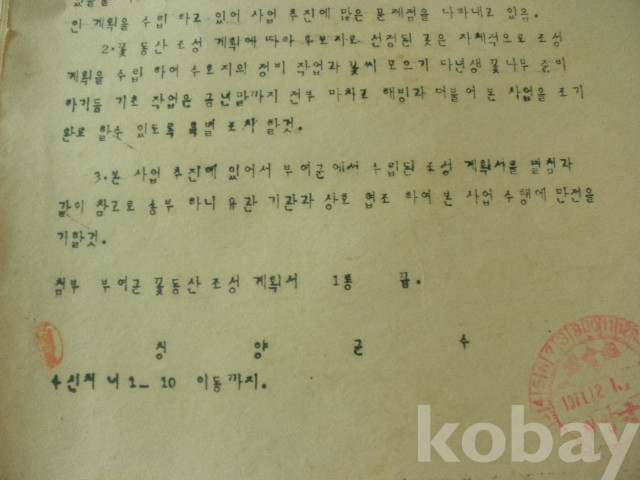 인 계획을 수립 하고 있어 사업 추진에 많은 문제점을 나타내고 있음.
2.꽃 동산 조성 계획에 따라 후보지로 선정된 곳은 자체적으로 조성
계획을 수립 하여 수호지의 정비 작업과 꽃씨 모으기 다년생 꽃나무 준비
하기등 기초 작업은 금년말까지 전부 마치고 해빙과 더불어 본 사업을 조기
완료 할수 있도록 특별 조치 할것.
3.본 사업 추진에 있어서 부여군에서 수립된 조성 계획서를 별첨과
같이 참고로 송부 하니 유관 기관과 상호 협조 하여 본 사업 수행에 만전을
기할것.
첨부 부여군 꽃동산 조성 계획서 1통 끝.
청 양 군 수
수신처 너 1_ 10 이동까지.
kobay